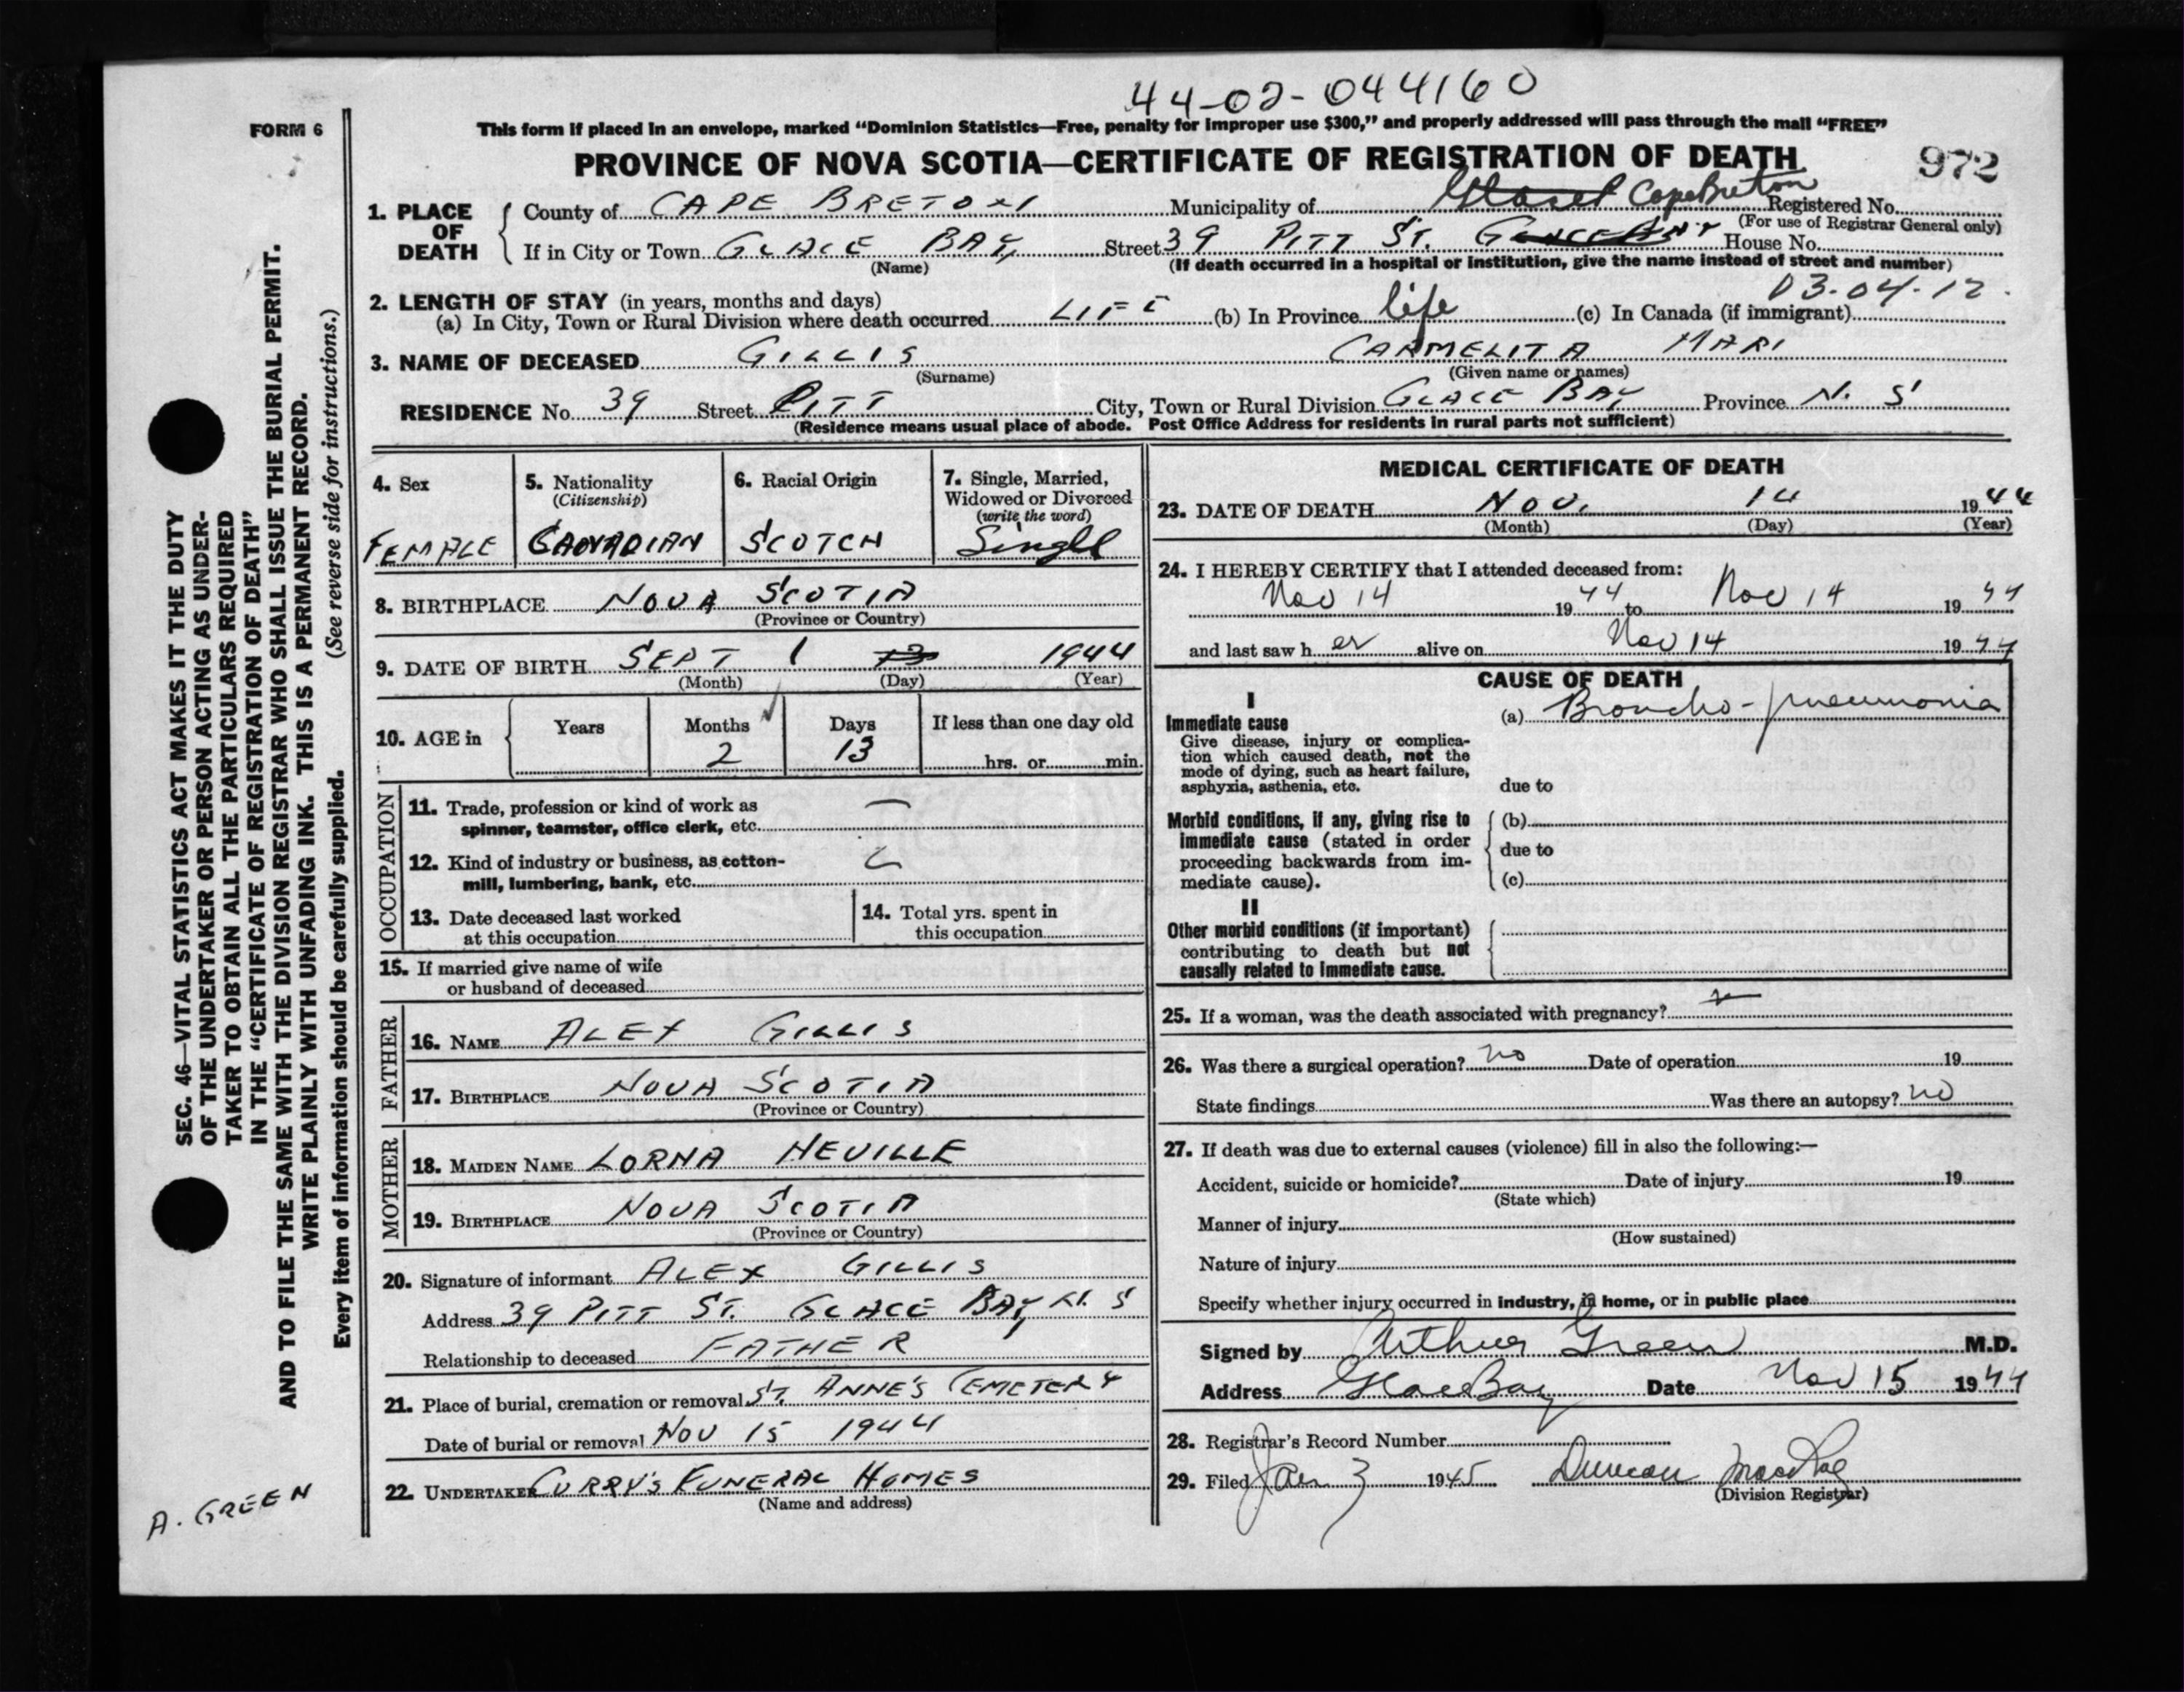 44-02-044160
FORM 6
This form if placed in an envelope, marked “Dominion Statistics—Free, penalty for improper use $300,” and properly addressed will pass through the mail “FREE”
PROVINCE OF NOVA SCOTIA—CERTIFICATE OF REGISTRATION OF DEATH
972
1. PLACE OF DEATH
County of CAPE BRETON Municipality of Cape Breton Registered No.
(For use of Registrar General only)
If in City or Town GLACE BAY, Street 39 PITT ST. House No.
(Name) (If death occurred in a hospital or institution, give the name instead of street and number)
03-04-12.
2. LENGTH OF STAY (in years, months and days)
(a) In City, Town or Rural Division where death occurred LIFE (b) In Province life (c) In Canada (if immigrant)
3. NAME OF DECEASED GILLIS CARMELITA MARI
(Surname) (Given name or names)
RESIDENCE No. 39 Street PITT City, Town or Rural Division GLACE BAY Province N. S
(Residence means usual place of abode. Post Office Address for residents in rural parts not sufficient)
4. Sex
FEMALE
5. Nationality
(Citizenship)
CANADIAN
6. Racial Origin
SCOTCH
7. Single, Married,
Widowed or Divorced
(write the word)
Single
8. BIRTHPLACE NOVA SCOTIA
(Province or Country)
9. DATE OF BIRTH SEPT 1 13 1944
(Month) (Day) (Year)
10. AGE in Years Months Days If less than one day old
2 13 hrs. or min.
OCCUPATION
11. Trade, profession or kind of work as
spinner, teamster, office clerk, etc.
12. Kind of industry or business, as cotton-
mill, lumbering, bank, etc.
13. Date deceased last worked
at this occupation
14. Total yrs. spent in
this occupation
15. If married give name of wife
or husband of deceased
FATHER
16. NAME ALEX GILLIS
17. BIRTHPLACE NOVA SCOTIA
(Province or Country)
MOTHER
18. MAIDEN NAME LORNA NEVILLE
19. BIRTHPLACE NOVA SCOTIA
(Province or Country)
20. Signature of informant ALEX GILLIS
Address 39 PITT ST. GLACE BAY N. S
Relationship to deceased FATHER
21. Place of burial, cremation or removal ST. ANNE'S CEMETERY
Date of burial or removal NOV 15 1944
22. UNDERTAKER CURRY'S FUNERAL HOMES
(Name and address)
MEDICAL CERTIFICATE OF DEATH
23. DATE OF DEATH NOV. 14 1944
(Month) (Day) (Year)
24. I HEREBY CERTIFY that I attended deceased from:
Nov 14 1944 to Nov 14 1944
and last saw her alive on Nov 14 1944
CAUSE OF DEATH
I
Immediate cause (a) Broncho-pneumonia
Give disease, injury or complica-
tion which caused death, not the
mode of dying, such as heart failure,
asphyxia, asthenia, etc. due to
Morbid conditions, if any, giving rise to (b)
immediate cause (stated in order due to
proceeding backwards from im-
mediate cause). (c)
II
Other morbid conditions (if important)
contributing to death but not
causally related to immediate cause.
25. If a woman, was the death associated with pregnancy?
26. Was there a surgical operation? no Date of operation 19
State findings Was there an autopsy? no
27. If death was due to external causes (violence) fill in also the following:—
Accident, suicide or homicide? Date of injury 19
(State which)
Manner of injury
(How sustained)
Nature of injury
Specify whether injury occurred in industry, in home, or in public place
Signed by Arthur Green M.D.
Address Glace Bay Date Nov 15 1944
28. Registrar's Record Number
29. Filed Jan 3 1945 Duncan MacRae
(Division Registrar)
SEC. 46—VITAL STATISTICS ACT MAKES IT THE DUTY
OF THE UNDERTAKER OR PERSON ACTING AS UNDER-
TAKER TO OBTAIN ALL THE PARTICULARS REQUIRED
IN THE “CERTIFICATE OF REGISTRATION OF DEATH”
AND TO FILE THE SAME WITH THE DIVISION REGISTRAR WHO SHALL ISSUE THE BURIAL PERMIT.
WRITE PLAINLY WITH UNFADING INK. THIS IS A PERMANENT RECORD.
Every item of information should be carefully supplied. (See reverse side for instructions.)
A. GREEN